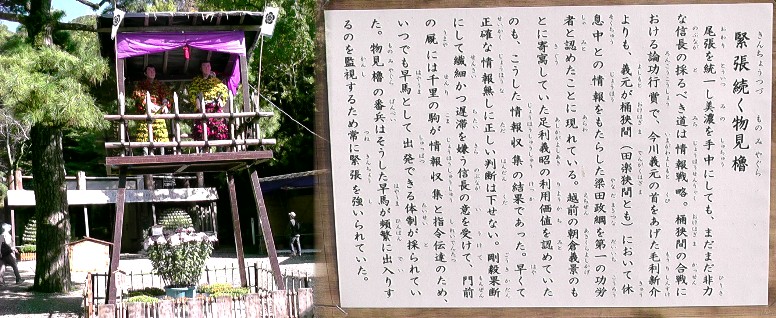 緊張続く物見櫓
きんちょうつづ ものみやぐら
尾張を統一し美濃を手中にしても、まだまだ非力
な信長の採るべき道は情報戦略。桶狭間の合戦に
おける論功行賞で、今川義元の首をあげた毛利新介
よりも、義元が桶狭間（田楽狭間とも）において休
息中との情報をもたらした梁田政綱を第一の功労
者と認めたことに現れている。越前の朝倉義景のも
とに寄寓していた足利義昭の利用価値を認めていた
のも、こうした情報収集の結果であった。早くて
正確な情報無しに正しい判断は下せない。剛毅果断
にして繊細かつ遅滞を嫌う信長の意を受けて、門前
の厩には千里の駒が情報収集と指令伝達のため、
いつでも早馬として出発できる体制が採られてい
た。物見櫓の番兵はそうした早馬が頻繁に出入りす
るのを監視するため常に緊張を強いられていた。